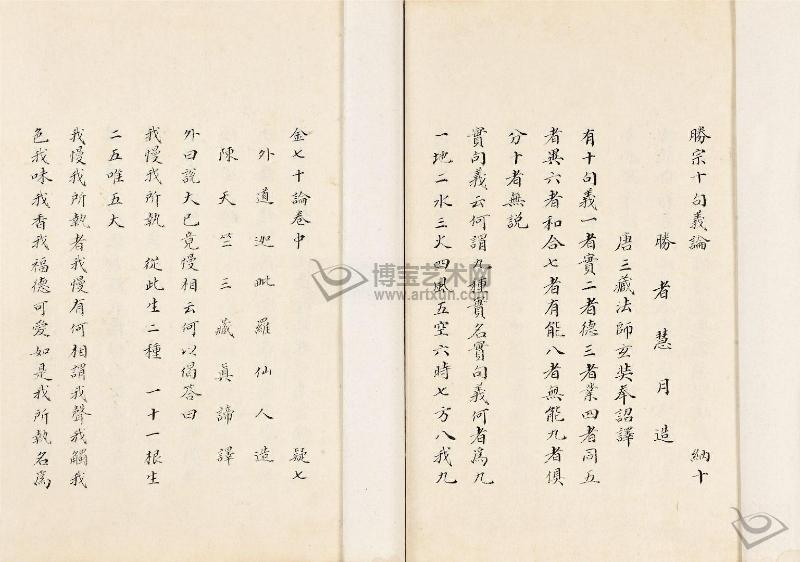 勝宗十句義論 納十
勝者慧月造
唐三藏法師玄奘奉詔譯
有十句義一者實二者德三者業四者同五
者異六者和合七者有能八者無能九者俱
分十者無説
實句義云何謂九種實名實句義何者為九
一地二水三火四風五空六時七方八我九
金七十論卷中 疑七
外道迦毗羅仙人造
陳天竺三藏真諦譯
外曰說大已竟慢相云何以偈答曰
我慢我所執 從此生二種 一十一根生
二五唯五大
我慢我所執者我慢有何相謂我聲我觸我
色我味我香我福德可愛如是我所執名為
博宝艺术网
www.artxun.com